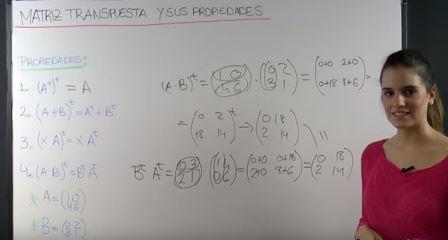 MATRIZ TRANSPUESTA Y SUS PROPIEDADES
PROPIEDADES:
1. (Aᵗ)ᵗ = A
2. (A+B)ᵗ = Aᵗ + Bᵗ
3. (x A)ᵗ = x Aᵗ
4. (A·B)ᵗ = Bᵗ Aᵗ
* A = (1 0
4 6)
* B = (0 2
3 1)
(A·B)ᵗ = (1 0
4 6) · (0 2
3 1) = (0+0 2+0
0+18 8+6) =
= (0 2
18 14)ᵗ → (0 18
2 14)
Bᵗ Aᵗ = (0 3
2 1) · (1 4
0 6) = (0+0 0+18
2+0 8+6) = (0 18
2 14)